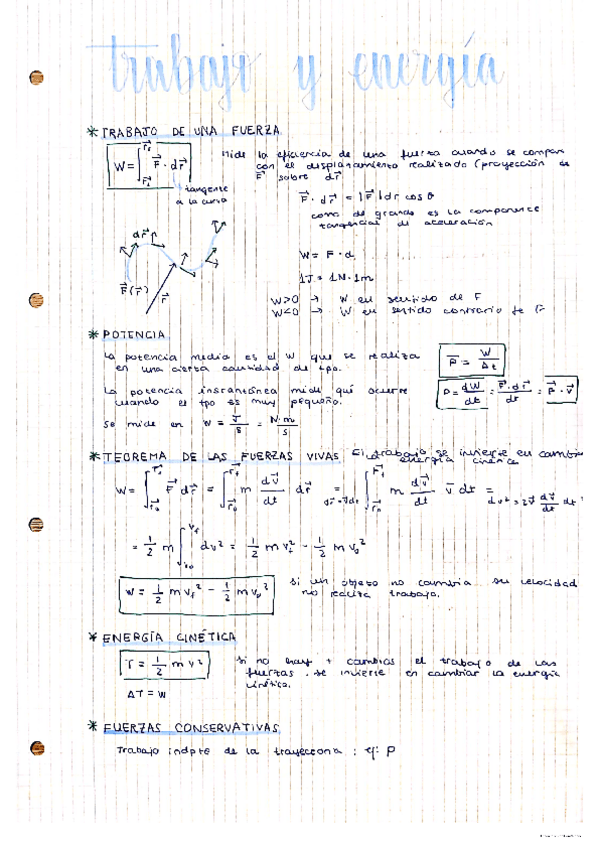 trabajo y energía
* TRABAJO DE UNA FUERZA
W = ∫ F⃗ · dr⃗
Mide la eficiencia de una fuerza cuando se compara
con el desplazamiento realizado (proyección de
F⃗ sobre dr⃗
tangente
a la curva
F⃗ · dr⃗ = |F⃗| dr cos θ
como de grande es la componente
tangencial de aceleración
dr⃗
F⃗(r⃗)
r⃗
W = F · d
1J = 1N · 1m
W>0 → W en sentido de F
W<0 → W en sentido contrario de F
* POTENCIA
La potencia media es el W que se realiza
en una cierta cantidad de tpo.
P̄ = W / Δt
La potencia instantánea mide qué ocurre
cuando el tpo es muy pequeño.
P = dW/dt = F⃗·dr⃗/dt = F⃗ · v⃗
Se mide en W = J/s = N·m/s
* TEOREMA DE LAS FUERZAS VIVAS El trabajo se invierte en cambiar
energía cinética
W = ∫ F⃗ dr⃗ = ∫ m dv⃗/dt dr⃗ = ∫ m dv⃗/dt · v⃗ dt =
dr⃗ = v⃗dt
dv² = 2v⃗ dv⃗/dt dt
= 1/2 m ∫ dv² = 1/2 m v_f² - 1/2 m v₀²
W = 1/2 m v_f² - 1/2 m v₀²
Si un objeto no cambia su velocidad
no realiza trabajo.
* ENERGÍA CINÉTICA
T = 1/2 m v²
Si no hay + cambios el trabajo de las
fuerzas se invierte en cambiar la energía
cinética.
ΔT = W
* FUERZAS CONSERVATIVAS
Trabajo indpte de la trayectoria : ej: P